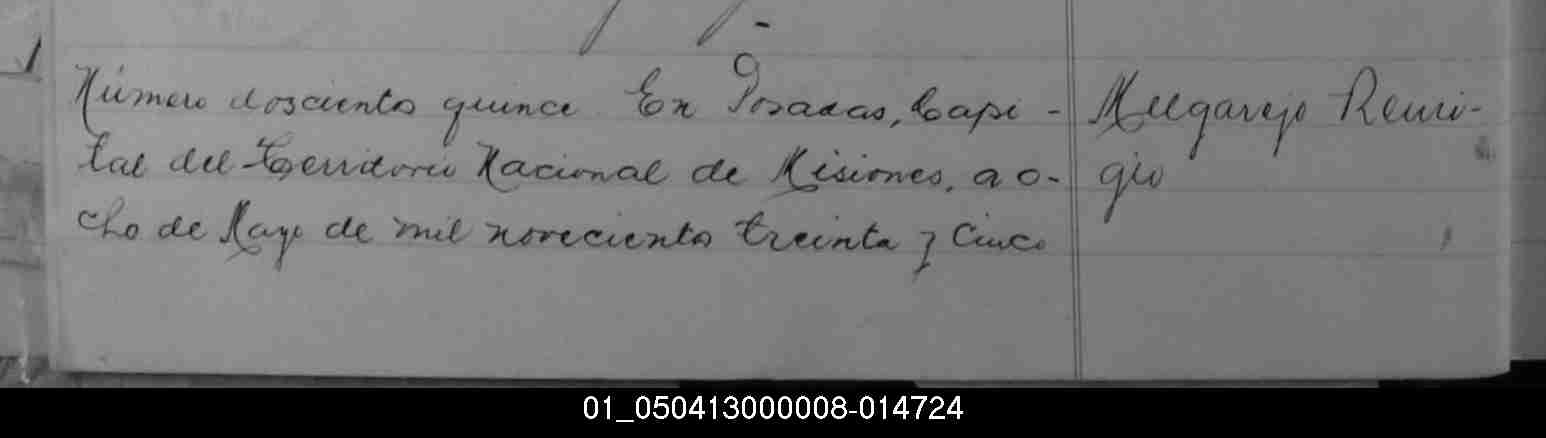 Número doscientos quince. En Posadas, Capi-
tal del Territorio Nacional de Misiones, a o-
cho de Mayo de mil novecientos treinta y cinco
Melgarejo Remi-
gio
01_050413000008-014724